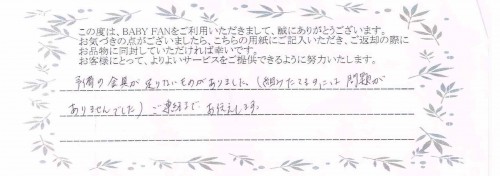 この度は、BABY FANをご利用いただきまして、誠にありがとうございます。
お気づきの点がございましたら、こちらの用紙にご記入いただき、ご返却の際に
お品物に同封していただければ幸いです。
お客様にとって、よりよいサービスをご提供できるように努力いたします。
の金具が足りないものがありました。(組みたてるのには問題が
ありませんでした) ご連絡まで お伝えします。